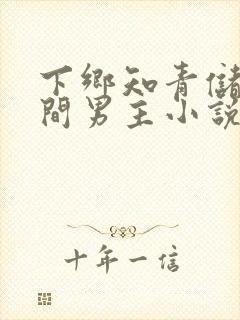 下鄉知青儲
間男主小說
十年一信